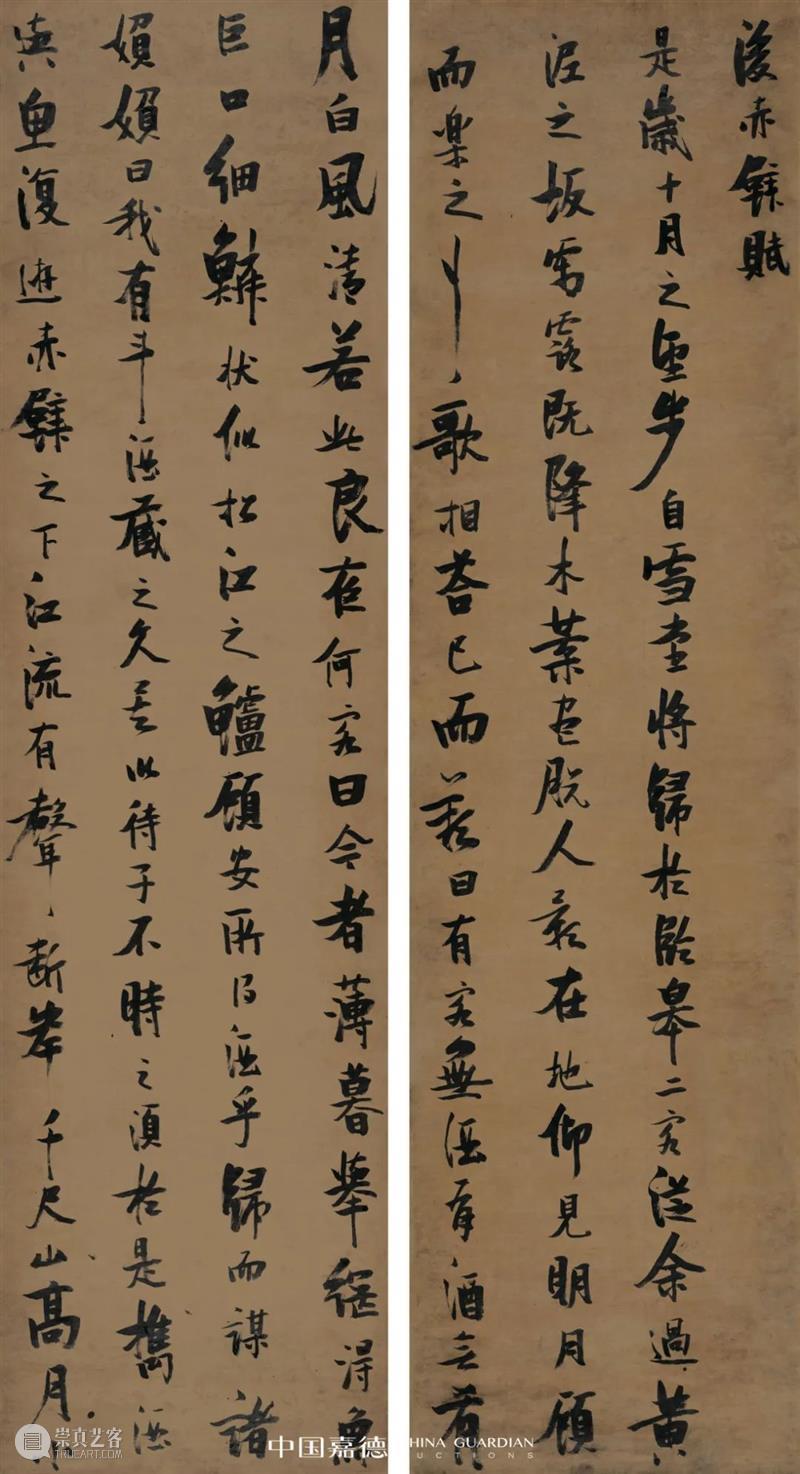 後赤壁賦
是歲十月之望步自雪堂將歸於臨皋二客從余過黃
泥之坂霜露既降木葉盡脫人影在地仰見明月顧
而樂之行、歌相荅已而嘆曰有客無酒有、酒無肴
月白風清若此良夜何客曰今者薄暮舉網得魚
巨口細鱗狀似松江之鱸顧安所得酒乎歸而謀諸
媍媍曰我有斗酒藏之久矣以待子不時之須於是攜酒
與魚復遊赤壁之下江流有聲、斷岸千尺山高月小
中国嘉德
HINA GUARDIAN
UCTIONS
崇真艺客